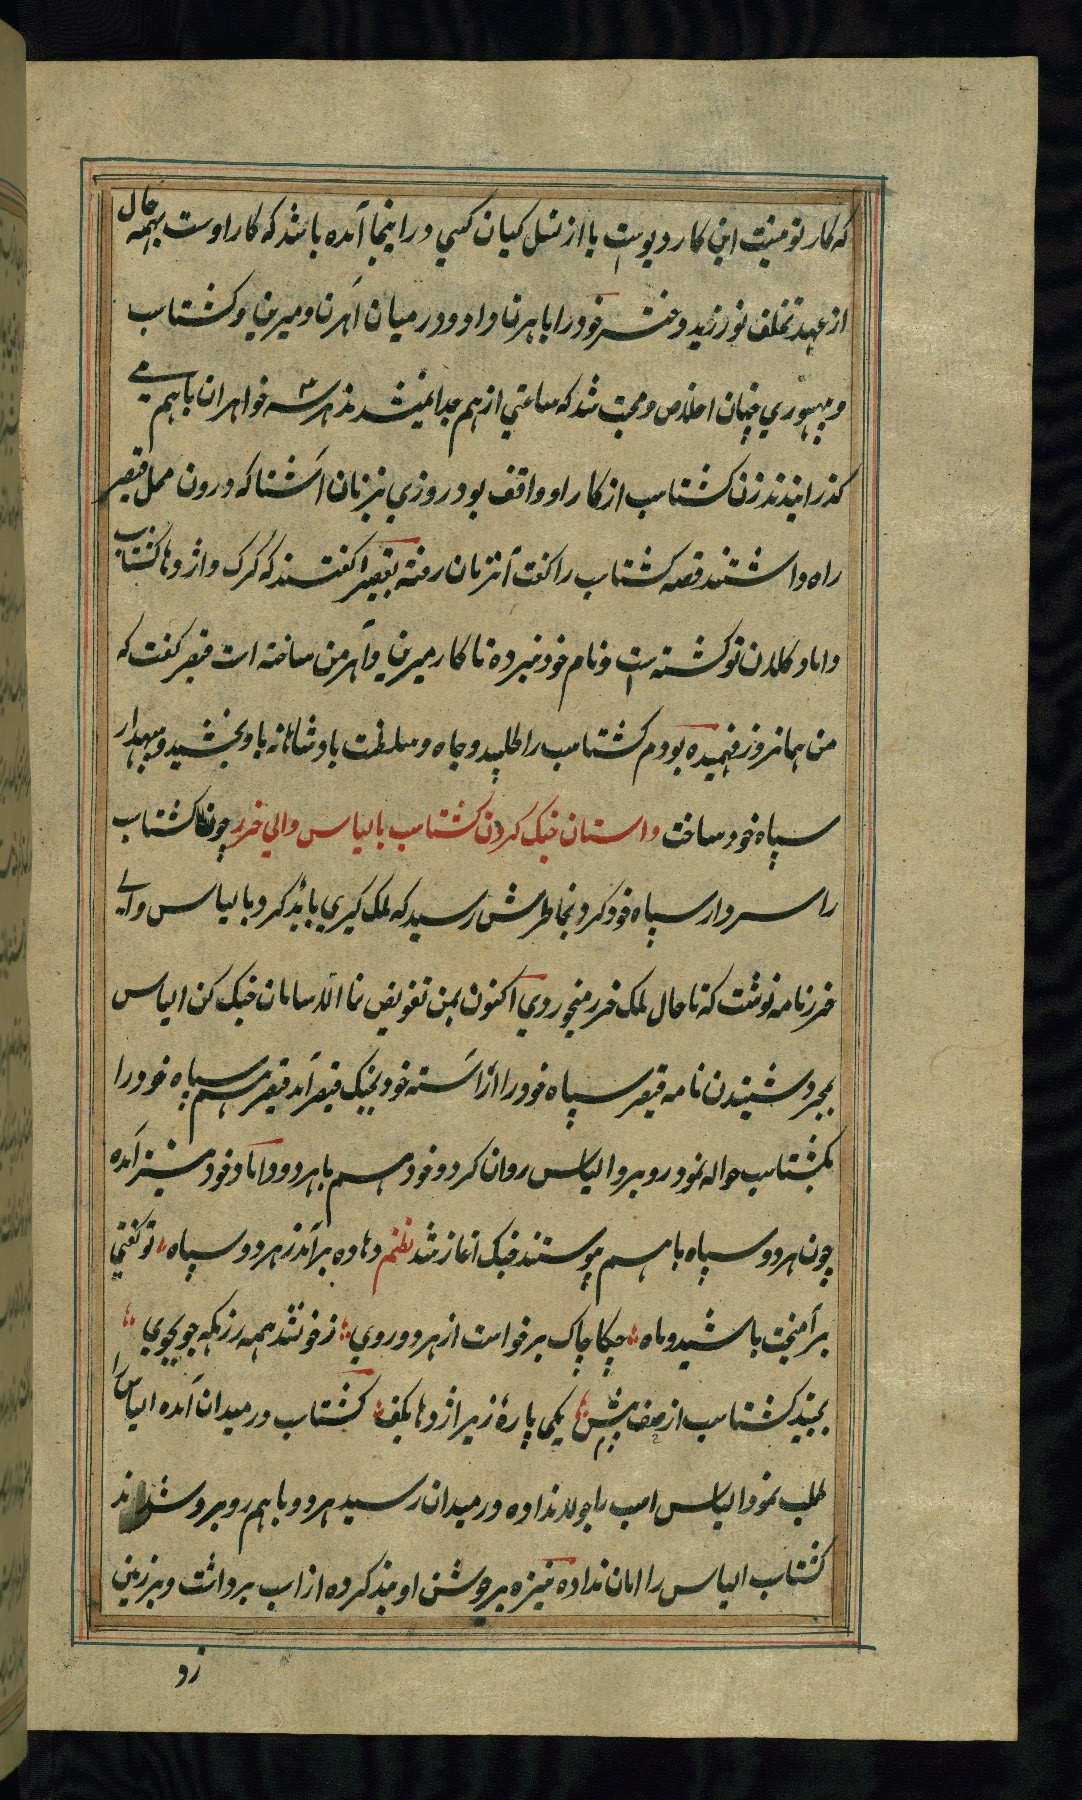 که کار تو نیست این کار دیوست یا از نسل کیان کسی در اینجا آمده باشد که کار اوست بهمه حال
از عهد تخلف نورزید دختر خود را باهرن داد و در میان اهرن و میرین و کشتاسب
و هیشوی چنان اخلاص و محبت شد که ساعتی از هم جدا نمیشدند هر سه خواهران باهم می
گذرانیدند زن کشتاسب از کار او واقف بود روزی بزنان آشنا که درون محل قیصر
راه داشتند قصه کشتاسب را گفت آنزنان رفته بقیصر گفتند که گرگ و اژدها کشتاسب
داماد کلان تو کشته است و نام خود نبرده تا کار میرین و آهرمن ساخته است قیصر گفت که
من همانروز فهمیده بودم کشتاسب را طلبید و جاه و سلطنت بادشاهانه باو بخشید و سپهدار
سپاه خود ساخت داستان جنک کردن کشتاسب با الیاس والی خزر چون کشتاسب
را سردار سپاه خود کرد بخاطرش رسید که ملک گیری باید کرد بالیاس والی
خزر نامه نوشت که تا حال ملک خزر میخوردی اکنون بمن تفویض نما الا سامان جنک کن الیاس
بمجرد شنیدن نامه قیصر سپاه خود را آراسته خود بجنک قیصر آمد قیصر هم سپاه خود را
بکشتاسب حواله نمود روبرو الیاس روان کرد و خود هم باهر دو داماد خود نیز آمده
چون هر دو سپاه باهم پیوستند جنک آغاز شد نظم دهاده برآمد ز هر دو سپاه تو گفتی
برآمیخت با شید و ماه چکاچاک برخواست از هر دو روی ز خون شد همه رزمکه جویجوی
بجنبید کشتاسب از صف پیش یکی بارهٔ زیر اژدها بکف کشتاسب در میدان آمده الیاس را
طلب نمود الیاس اسب را جولان داده در میدان رسید هر دو باهم روبرو شدند
کشتاسب الیاس را امان نداده نیزه بر جوشن او بند کرده از اسب برداشت و بر زمین
زد